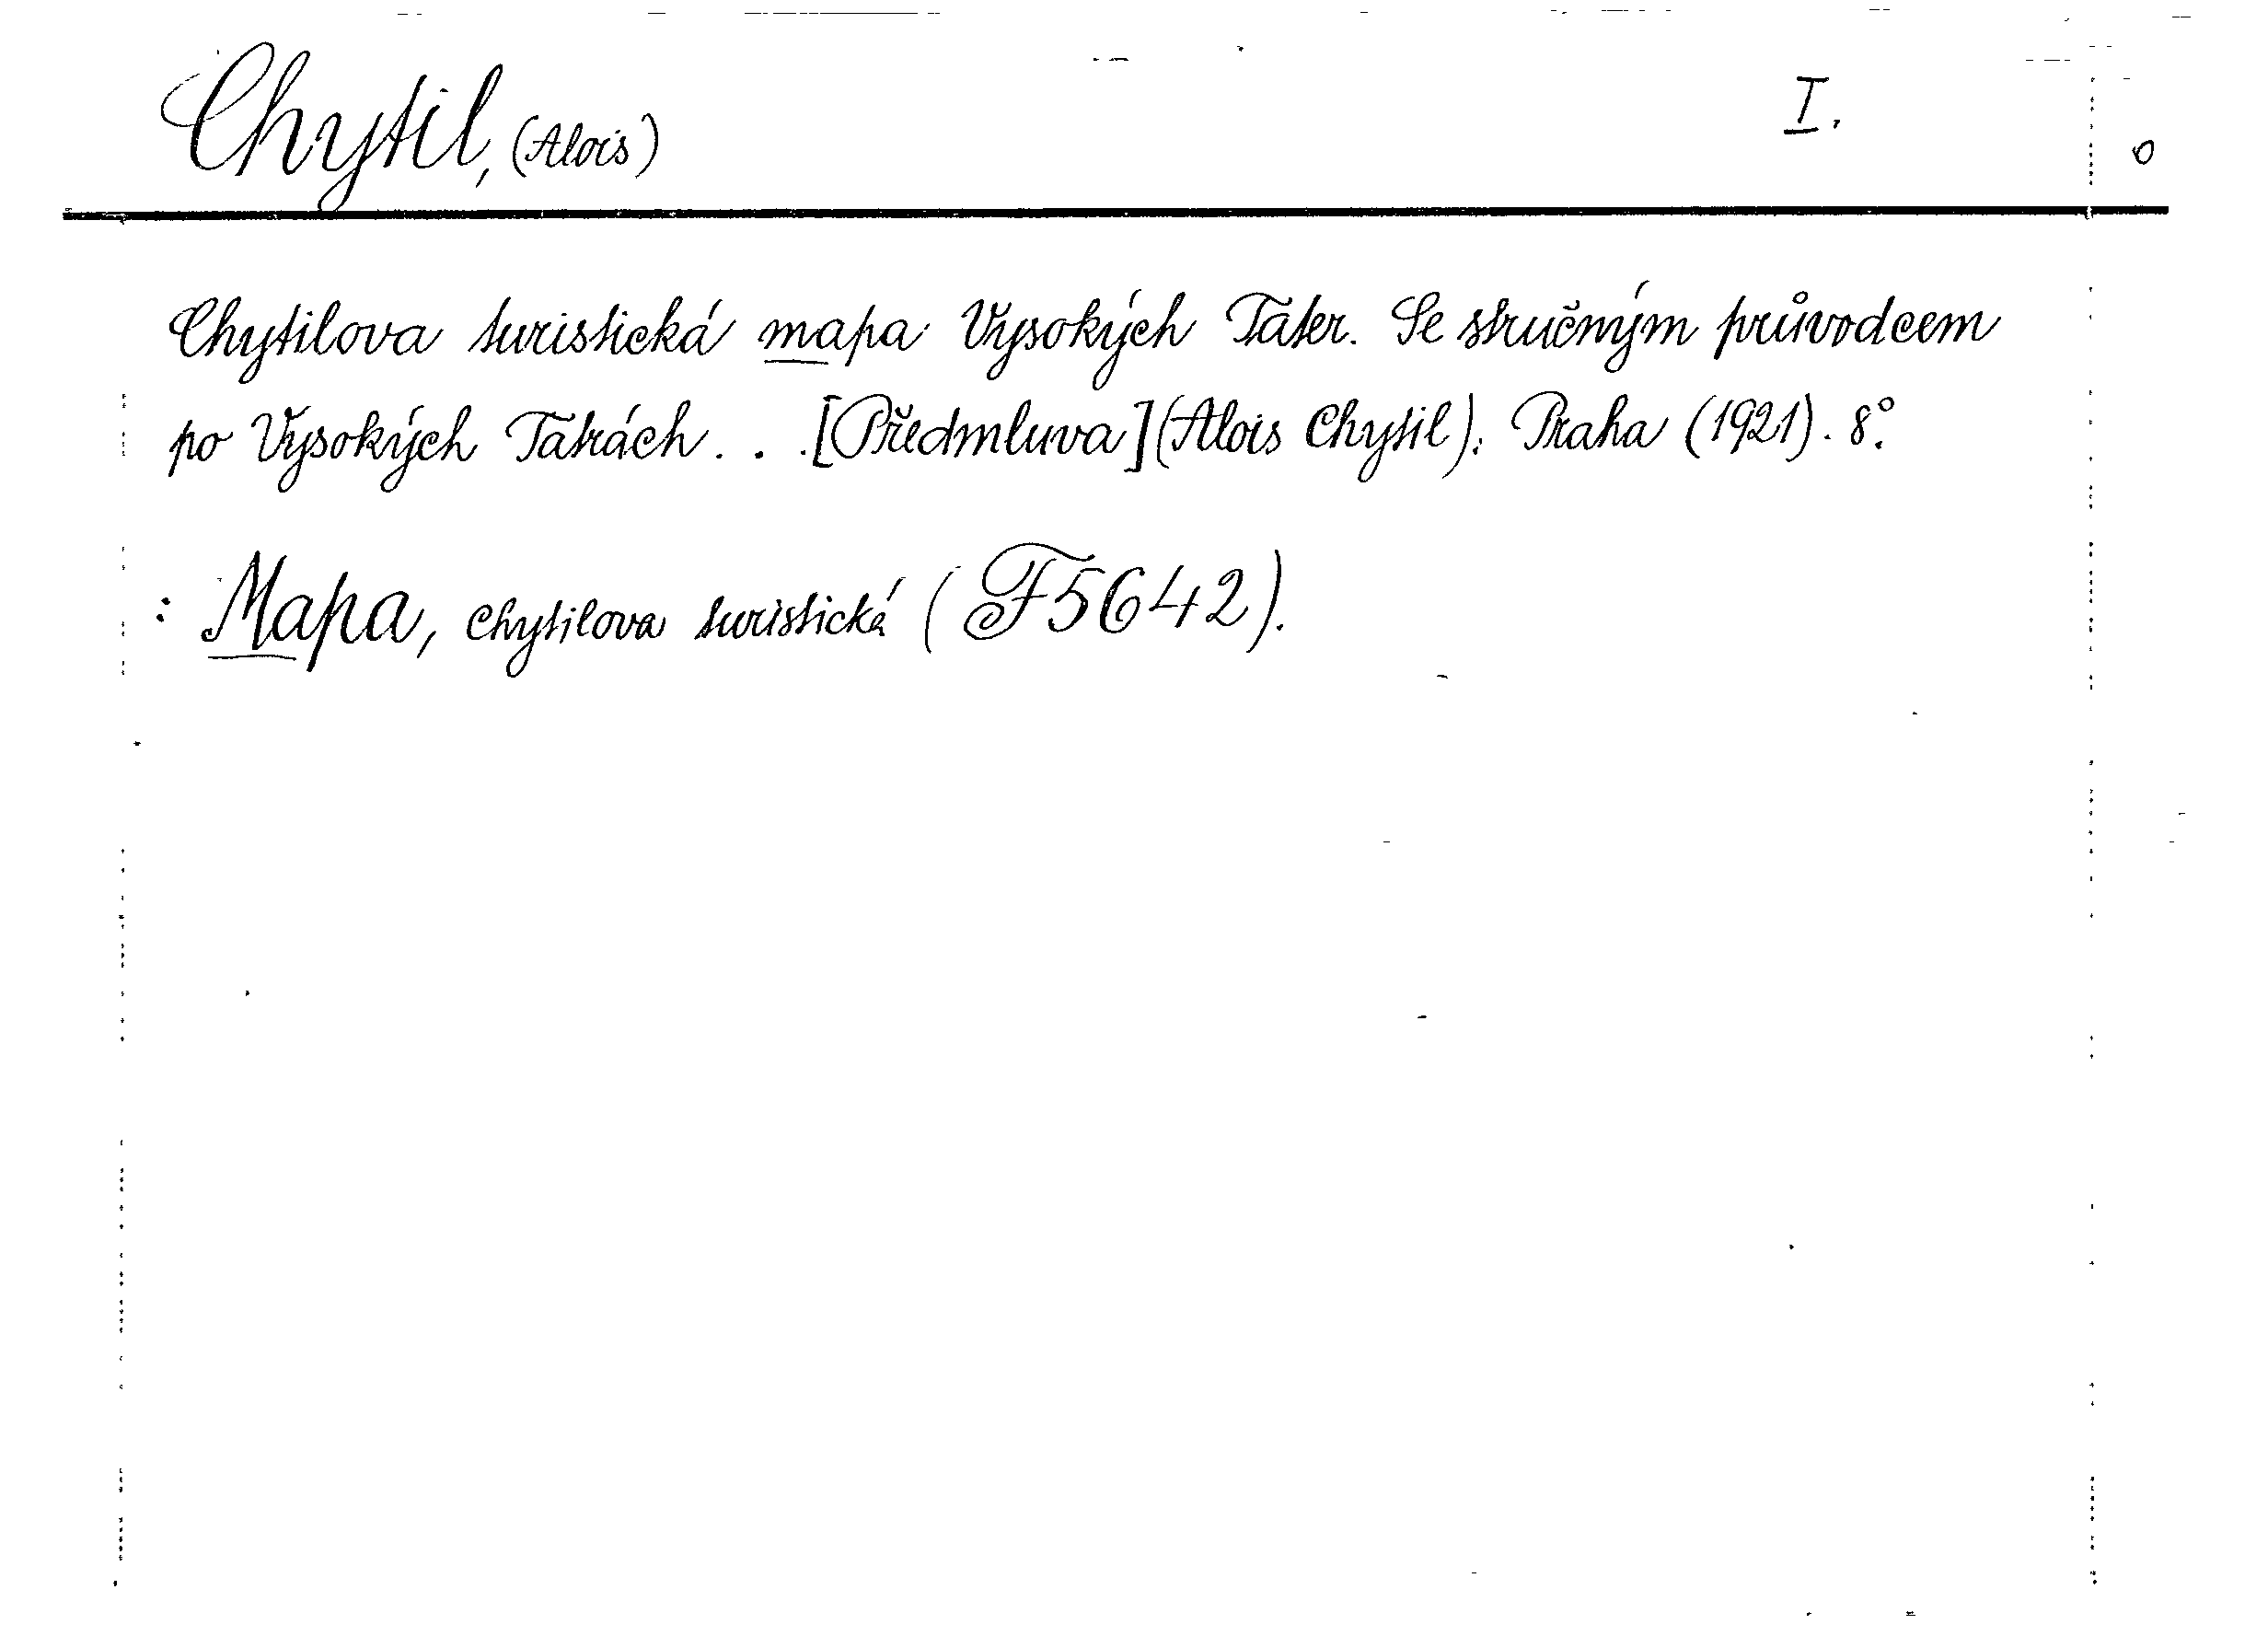 Chytil, (Alois) I. o
Chytilova turistická mapa Vysokých Tater. Se stručným průvodcem
po Vysokých Tatrách. . .[Předmluva](Alois Chytil). Praha (1921). 8°.
: Mapa, chytilova turistická (F5642).